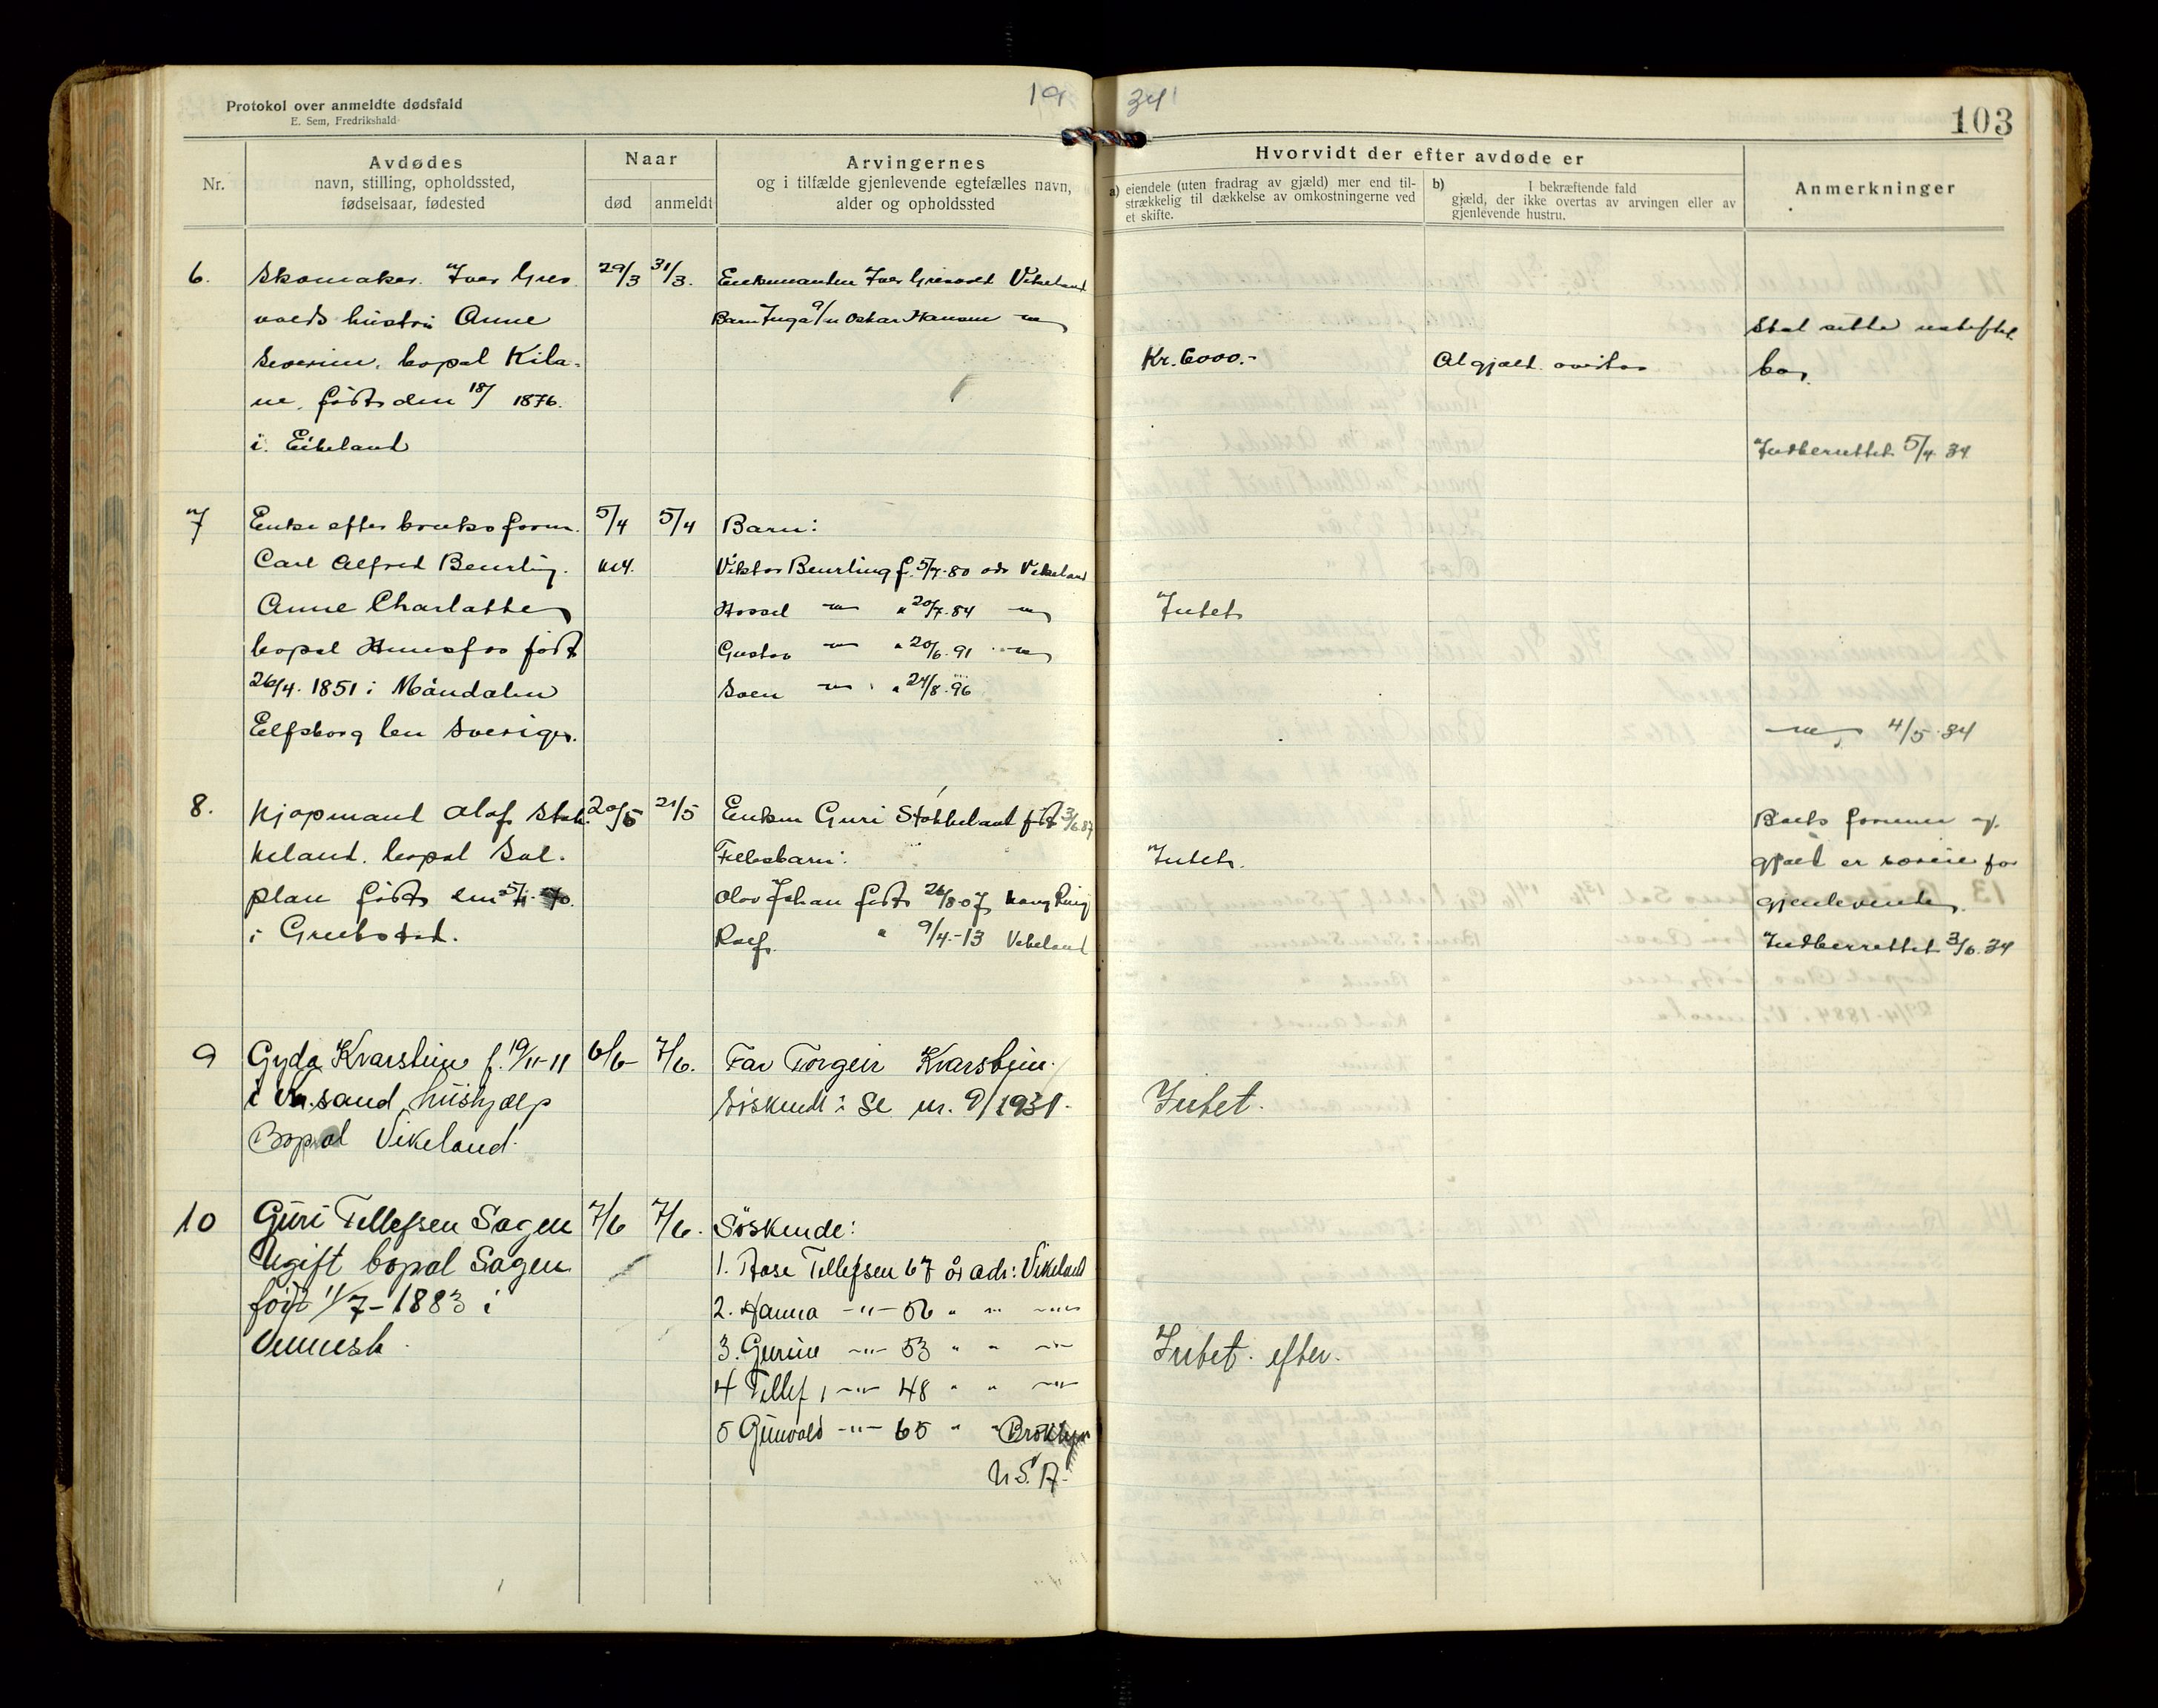 Protokol over anmeldte dødsfald
E. Sem, Fredrikshald
19 34
103
Nr.
Avdødes
navn, stilling, opholdssted,
fødselsaar, fødested
Naar
død
anmeldt
Arvingernes
og i tilfælde gjenlevende egtefælles navn,
alder og opholdssted
Hvorvidt der efter avdøde er
a) eiendele (uten fradrag av gjæld) mer end til-
strækkelig til dækkelse av omkostningerne ved
et skifte.
b) I bekræftende fald
gjæld, der ikke overtas av arvingen eller av
gjenlevende hustru.
Anmerkninger
6.
Skomaker Iver Gres
volds hustru Anne
Severine, bopal Kila-
ne, födt den 18/ 1876.
i Eikeland
29/3
31/3.
Enkemanden Iver Gresvold Vikeland
Barn Inga g/m Oskar Hansen
Kr. 6000.-
Al gjæld
Skal sitte
bo.
Indberettet 5/4 34
7
Enke efter bruksform.
Carl Alfred Beurling.
Anne Charlotte
bopal Hunsfos födt
26/4. 1851 i Måndalen
Elfsborg len Sverige.
5/4
5/4
Barn:
Viktor Beurling f. 5/7-80 adr Vikeland
20/7-84
Gustav " 20/6.91
Sven " 24/8.96
Intet
4/5 34
8.
Kjøpmand Olof Stok
keland. bopal Sol.
plan födt den 5/ 70
i Grebstad.
20/5
21/5
Enken Guri Stokkeland födt 3/6.87
Fellesbarn:
Olov Johan födt 26/8-07
Rolf " 9/4-13 Vikeland
Intet.
Boets formue og
gjæld er særeie for
gjenlevende.
Indberettet 3/6.34
9
Gyda Kvarstein f. 19/11-11
i Kr.sand, hüshjælp
Bopal Vikeland.
6/6-
7/6.
Far Torgeir Kvarstein.
Söskende: Se nr. 9/1931.
Intet.
10
Güri Tellefsen Sagen
Ugift bopal Sagen
född 11/7-1883 i
Vennesla.
7/6
7/6.
Söskende:
1. Aase Tellefsen 67 år adr: Vikeland
2. Hanna -"- 56 " " -"-
3. Gurine -"- 53 " " -"-
4 Tellef, -"- 48 " " -"-
5 Günvald -"- 65 " " Broklyn
U.S.A.
Intet. efter.